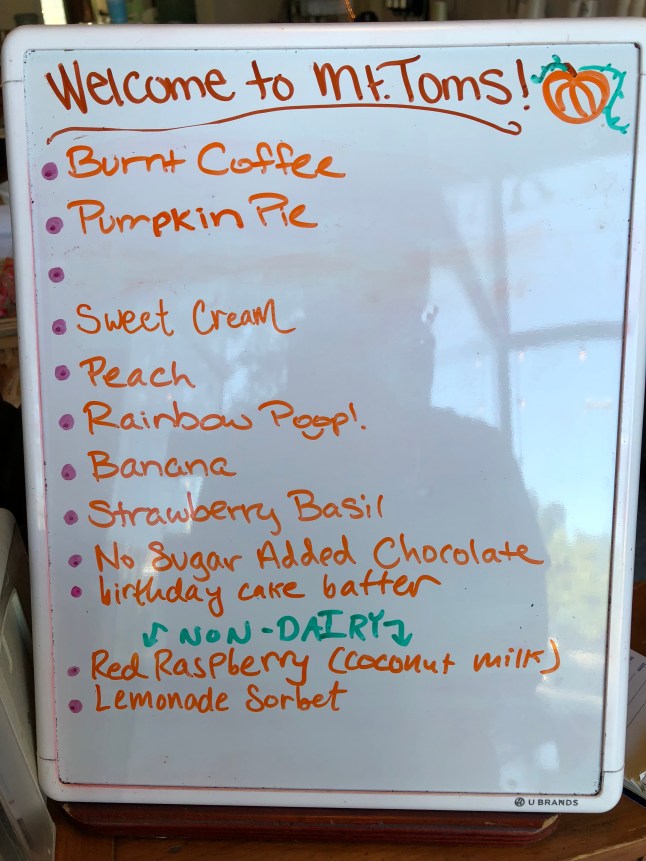 Welcome to Mt. Toms!
Burnt Coffee
Pumpkin Pie
Sweet Cream
Peach
Rainbow Poop!
Banana
Strawberry Basil
No Sugar Added Chocolate
birthday cake batter
NON-DAIRY
Red Raspberry (coconut milk)
Lemonade Sorbet
U BRANDS